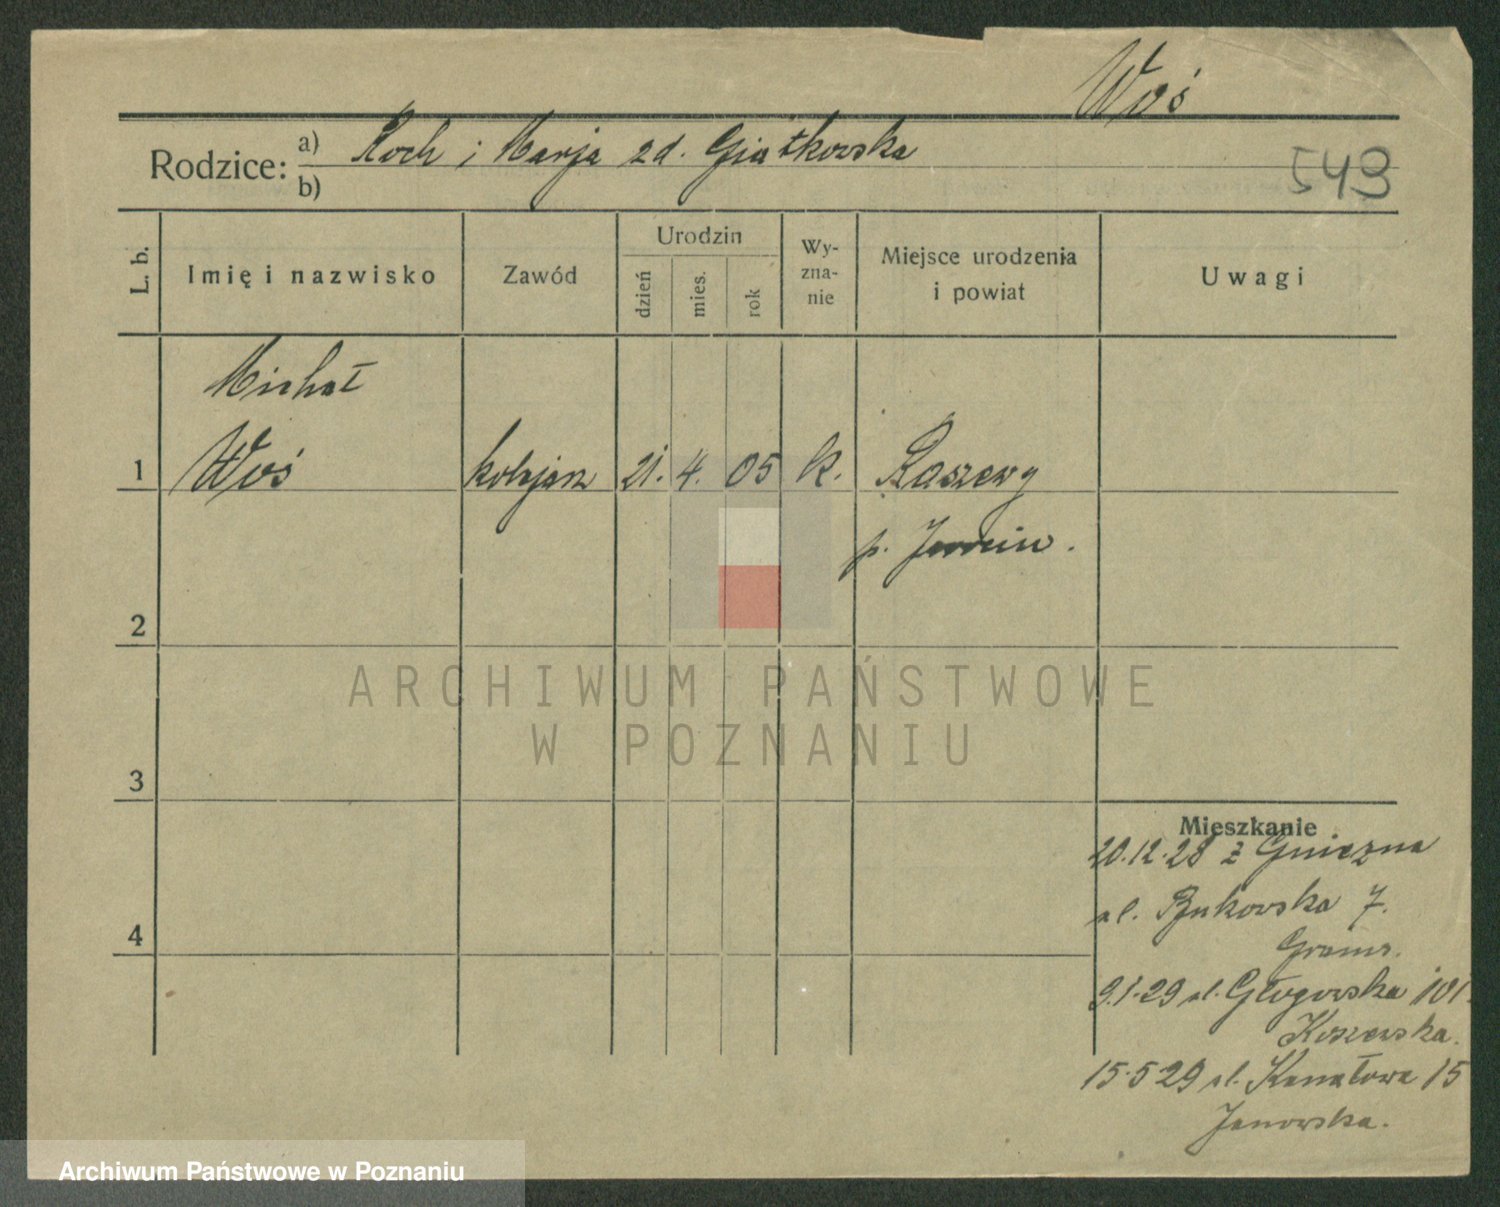 Woś
Rodzice: a) Roch i Marja zd. Giatkowska
b)
549
L. b.
Imię i nazwisko
Zawód
Urodzin
dzień
mies.
rok
Wy-
zna-
nie
Miejsce urodzenia
i powiat
Uwagi
Michał
1 Woś kolejarz 21. 4. 05 k. Raszewy
p. Jarocin.
2
3
4
Mieszkanie
20.12.28 z Gniezna
ul. Bukowska 7.
9.1.29 ul. Głogowska 101.
Koszewska.
15.5 29 ul. Kanałowa 15
Janowska.
ARCHIWUM PAŃSTWOWE
W POZNANIU
Archiwum Państwowe w Poznaniu